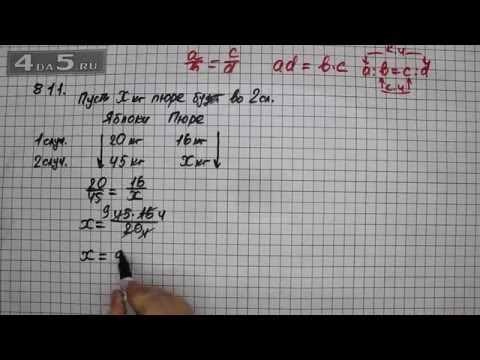 4DA5.RU
a/b = c/d  ad = b·c  a:b=c:d
к.ч
с.ч
811. Пусть X кг пюре будет во 2 сл.
Яблоки Пюре
1 случ. 20 кг 16 кг
2 случ. 45 кг X кг
20/45 = 16/x
x = 9 45·16 4 / 20 4
x = 9